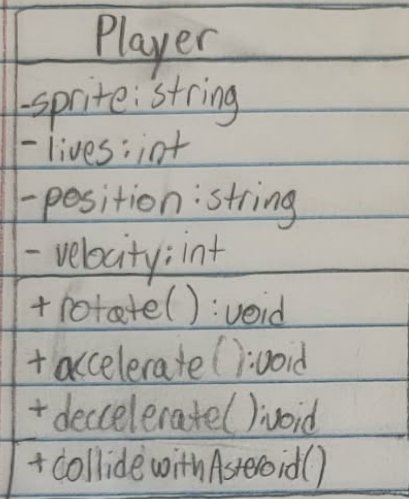 Player
-sprite: string
- lives: int
- position: string
- velocity: int
+ rotate(): void
+ accelerate(): void
+ deccelerate(): void
+ collide withAsteroid()